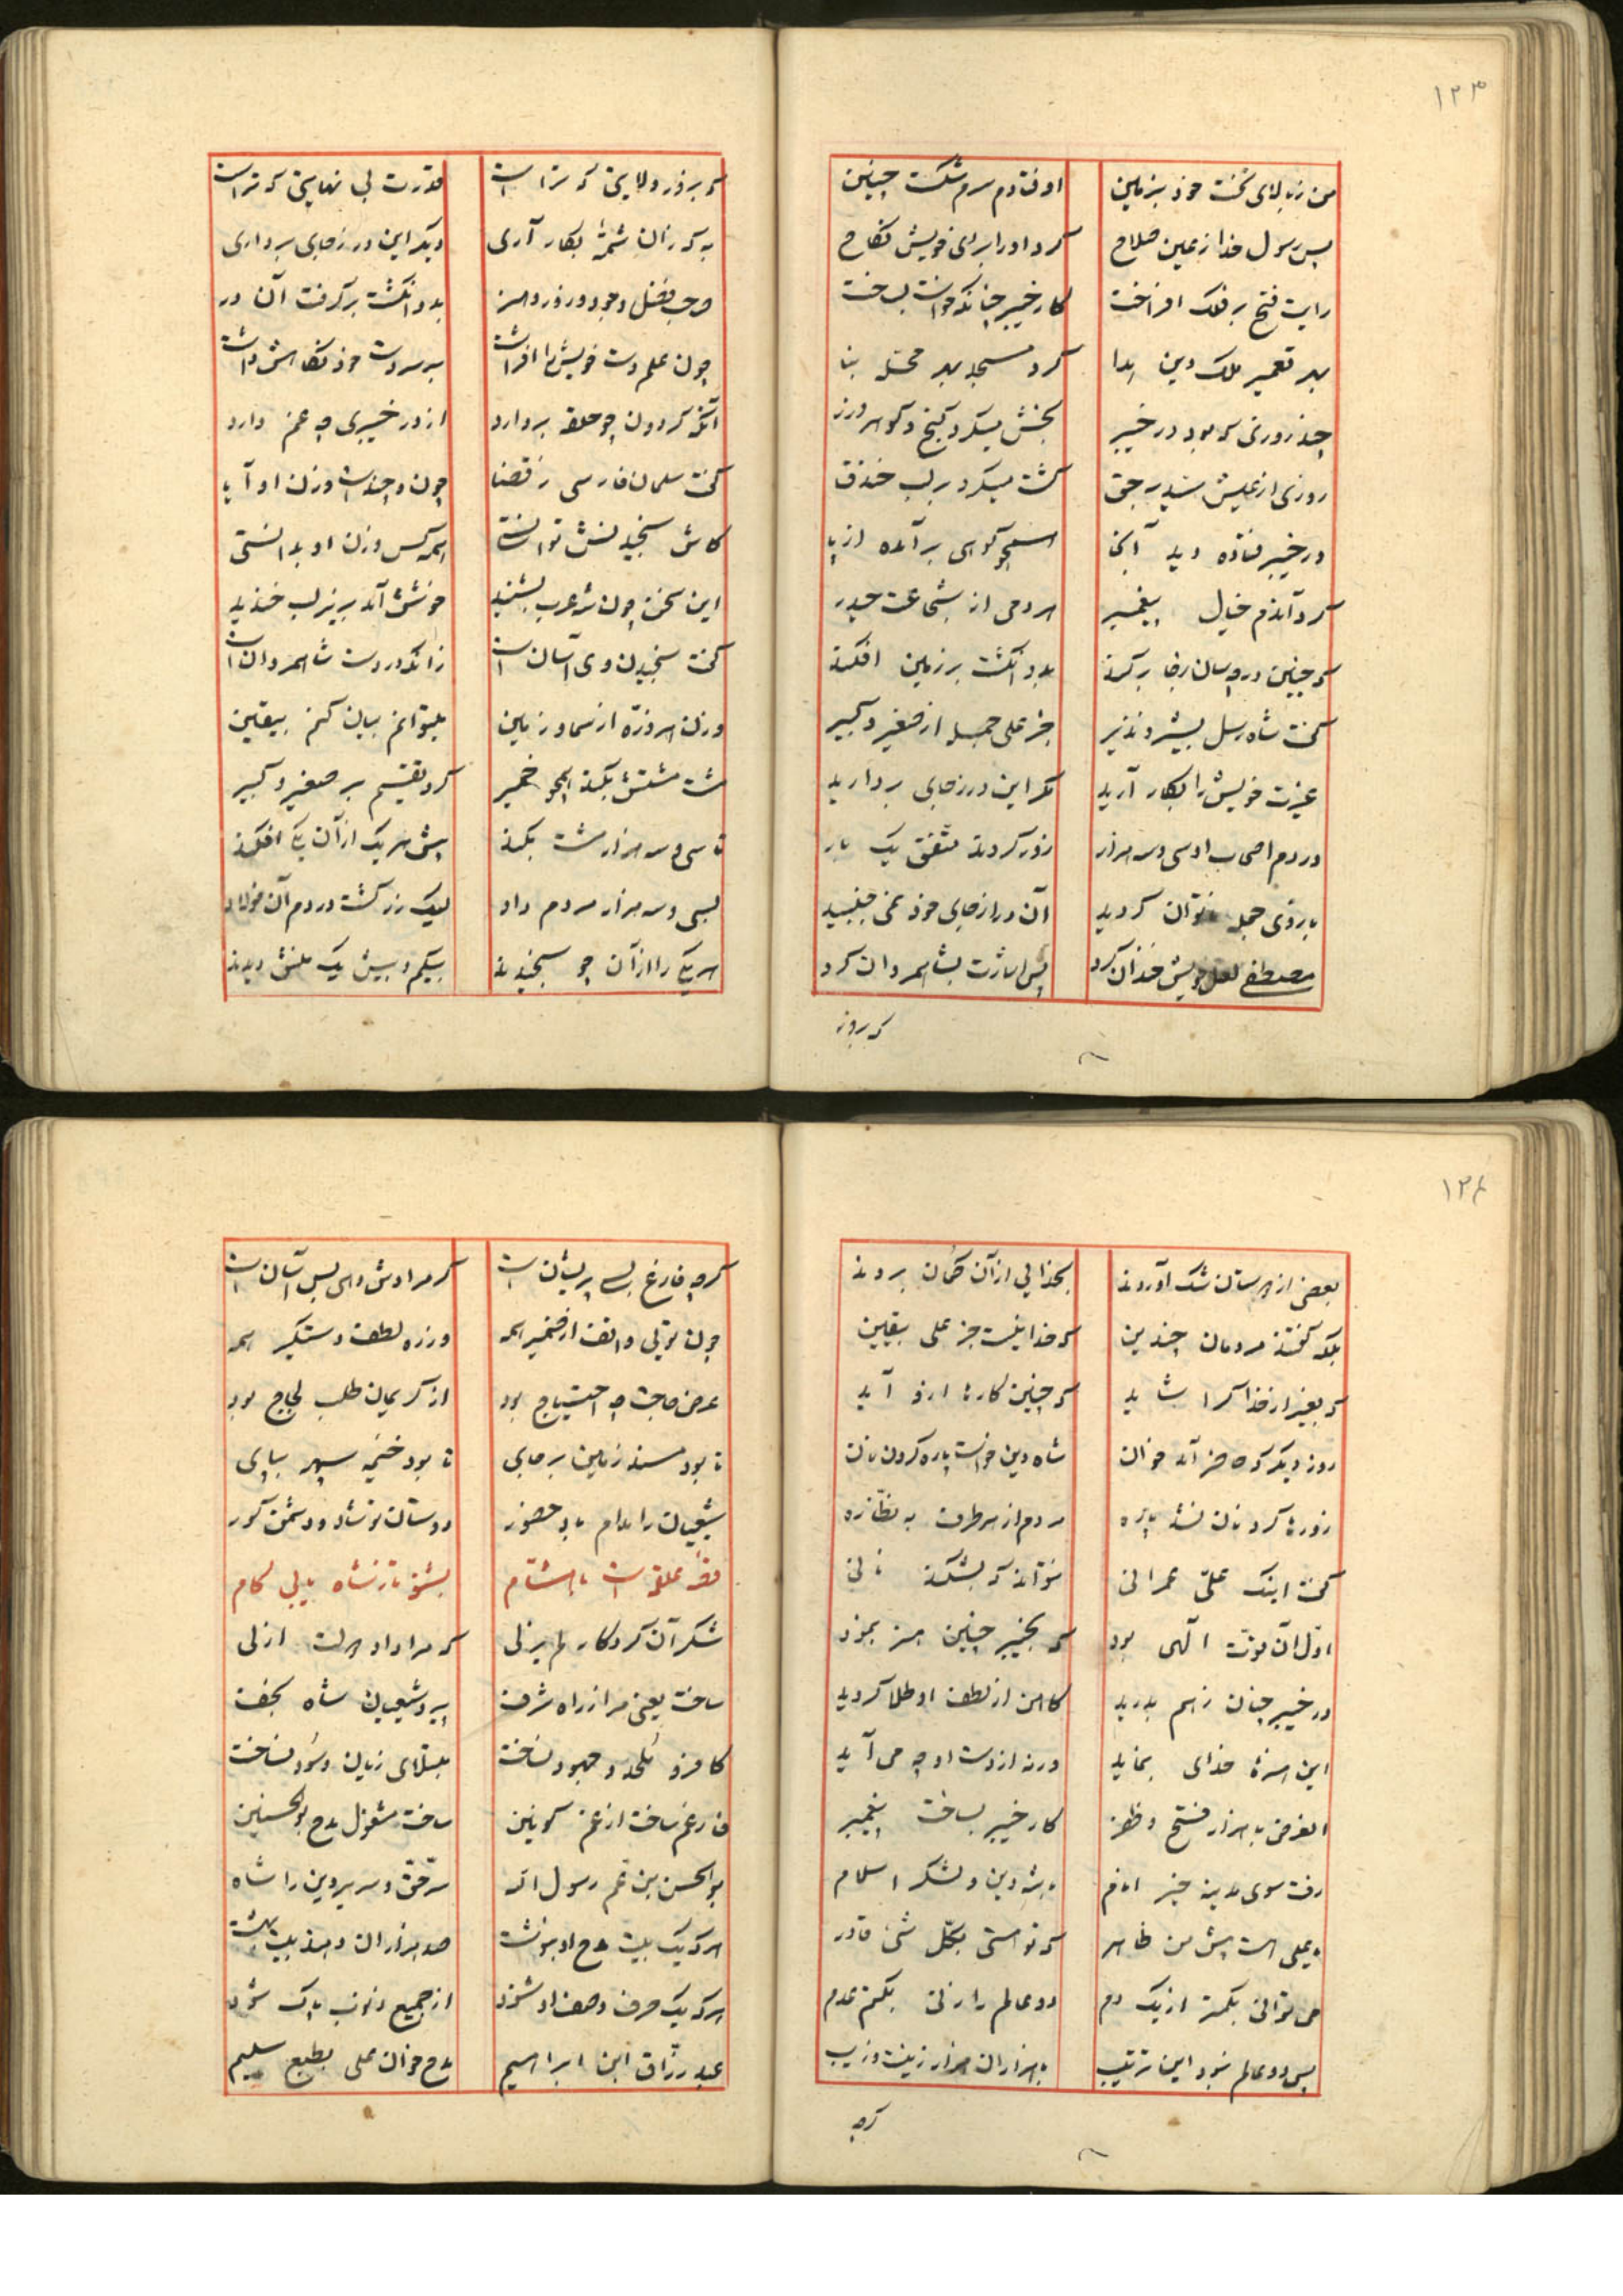 ۱۲۳
من ز بالای تخت خود بزمین اوفتادم سرم شکست چنین
پس رسول خدا ز عین صلاح کرد او را برای خویش نکاح
رایت فتح بر فلک افراخت کار خیبر چنانکه خواست بساخت
بهر تعمیر ملک دین هدا کرد مسجد بهر محله بنا
چند روزی که بود در خیبر بخش میکرد گنج و گوهر و زر
روزی از عیش سید بر حق گشت میکرد بر لب خندق
در خیبر فتاده دید آنجا همچو کوهی برآمده از پا
کرد آندم خیال پیغمبر مردمی از شجاعت حیدر
که چنین در چسان ز جا برکند بدو انگشت بر زمین افکند
گفت شاه رسل بشیر و نذیر جز علی جمله از صغیر و کبیر
عزت خویش را بکار آرید مگر این در ز جای بردارید
در دم اصحاب او سی و سه هزار زور کردند متفق یک بار
بازوی جمله ناتوان گردید آن در از جای خود نمی جنبید
مصطفی لعل خویش خندان کرد پس اشارت بشاه مردان کرد
که بزور
که بزور ولایتی که تراست قدرت بی نهایتی که تراست
به که زان شمهٔ بکار آری وین در ز جای برداری
صاحب فضل و جود و زور و هنر بدو انگشت برگرفت آن در
چون علم دست خویش را افراشت بر سر دست خود نگاهش داشت
آنکه گردون چو حلقه بردارد از در خیبری چه غم دارد
گفت سلمان فارسی ز قضا چون و چندست وزن او آیا
کاش سنجیدنش توانستی همه کس وزن او بدانستی
این سخن چون شه عرب بشنید خوشش آمد بزیر لب خندید
گفت سنجیدن وی آسان است زانکه در دست شاه مردان است
وزن هر ذره از سما و زمین میتوانم بیان کنم بیقین
مشت مشتش بکند همچو خمیر کرد تقسیم بر صغیر و کبیر
تا سی و سه هزار مشت بکند پیش هر یک از آن یکی افکند
بسی و سه هزار مردم داد لیک زر گشت در دم آن فولاد
هر یکی را از آن چو سنجیدند بیکم و بیش یک منش دیدند
۱۲۴
بعضی از هرستان شک آوردند بخدایی از آن گمان بردند
بلکه گفتند مردمان چندین که خدا نیست جز علی بیقین
که بغیر از خدا کرا شاید که چنین کارها ازو آید
روز دیگر که حاضر آمد خوان شاه دین خواست پاره کردن نان
زورها کرد نان نشد پاره مردم از هر طرف به نظاره
گفت اینک علی عمرانی نتواند که بشکند نانی
اول آن قوت الهی بود که بخیبر چنین هنر بنمود
در خیبر چنان ز هم بدرید کآهن از لطف او طلا گردید
این هنرها خدای بنماید ورنه از دست او چه می آید
الغرض با هزار فتح و ظفر کار خیبر بساخت پیغمبر
رفت سوی مدینه خیر انام با شه دین و لشکر اسلام
یا علی هست پیش من ظاهر که تو هستی بکل شئ قادر
می توانی بکمتر از یک دم دو عالم را زنی بکتم عدم
پس دو عالم شود این ترتیب با هزاران هزار زینت و زیب
گرچه
گرچه فارغ بسی پریشان است گر مرادش دهی بس آسان است
چون تویی واقف از ضمیر همه ورنه لطفت دستگیر همه
عرض حاجت چه احتیاج بود از کریمان طلب لجاج بود
تا بود مسند زمین بر جای تا بود خیمه سپهر بپای
شیعیان را مدام باد حضور دوستان تو شاد و دشمن کور
بشنو تا ز شاه یابی کام
شکر آن کردگار لم یزلی که مرا داد دولت ازلی
ساخت یعنی مرا ز راه شرف پیرو شیعیان شاه نجف
کافر و ملحد و جهود نساخت مبتلای زیان و سود نساخت
فارغم ساخت از غم کونین ساخت مشغول مدح بوالحسنین
بوالحسن بن عم رسول اله سر حق و سریر دین را شاه
هر که یک بیت مدح او بنوشت صد هزاران دهند بیت بهشت
هر که یک حرف وصف او شنود از جمیع ذنوب پاک شود
عبد رزاق ابن ابراهیم مدح خوان علی بطبع سلیم